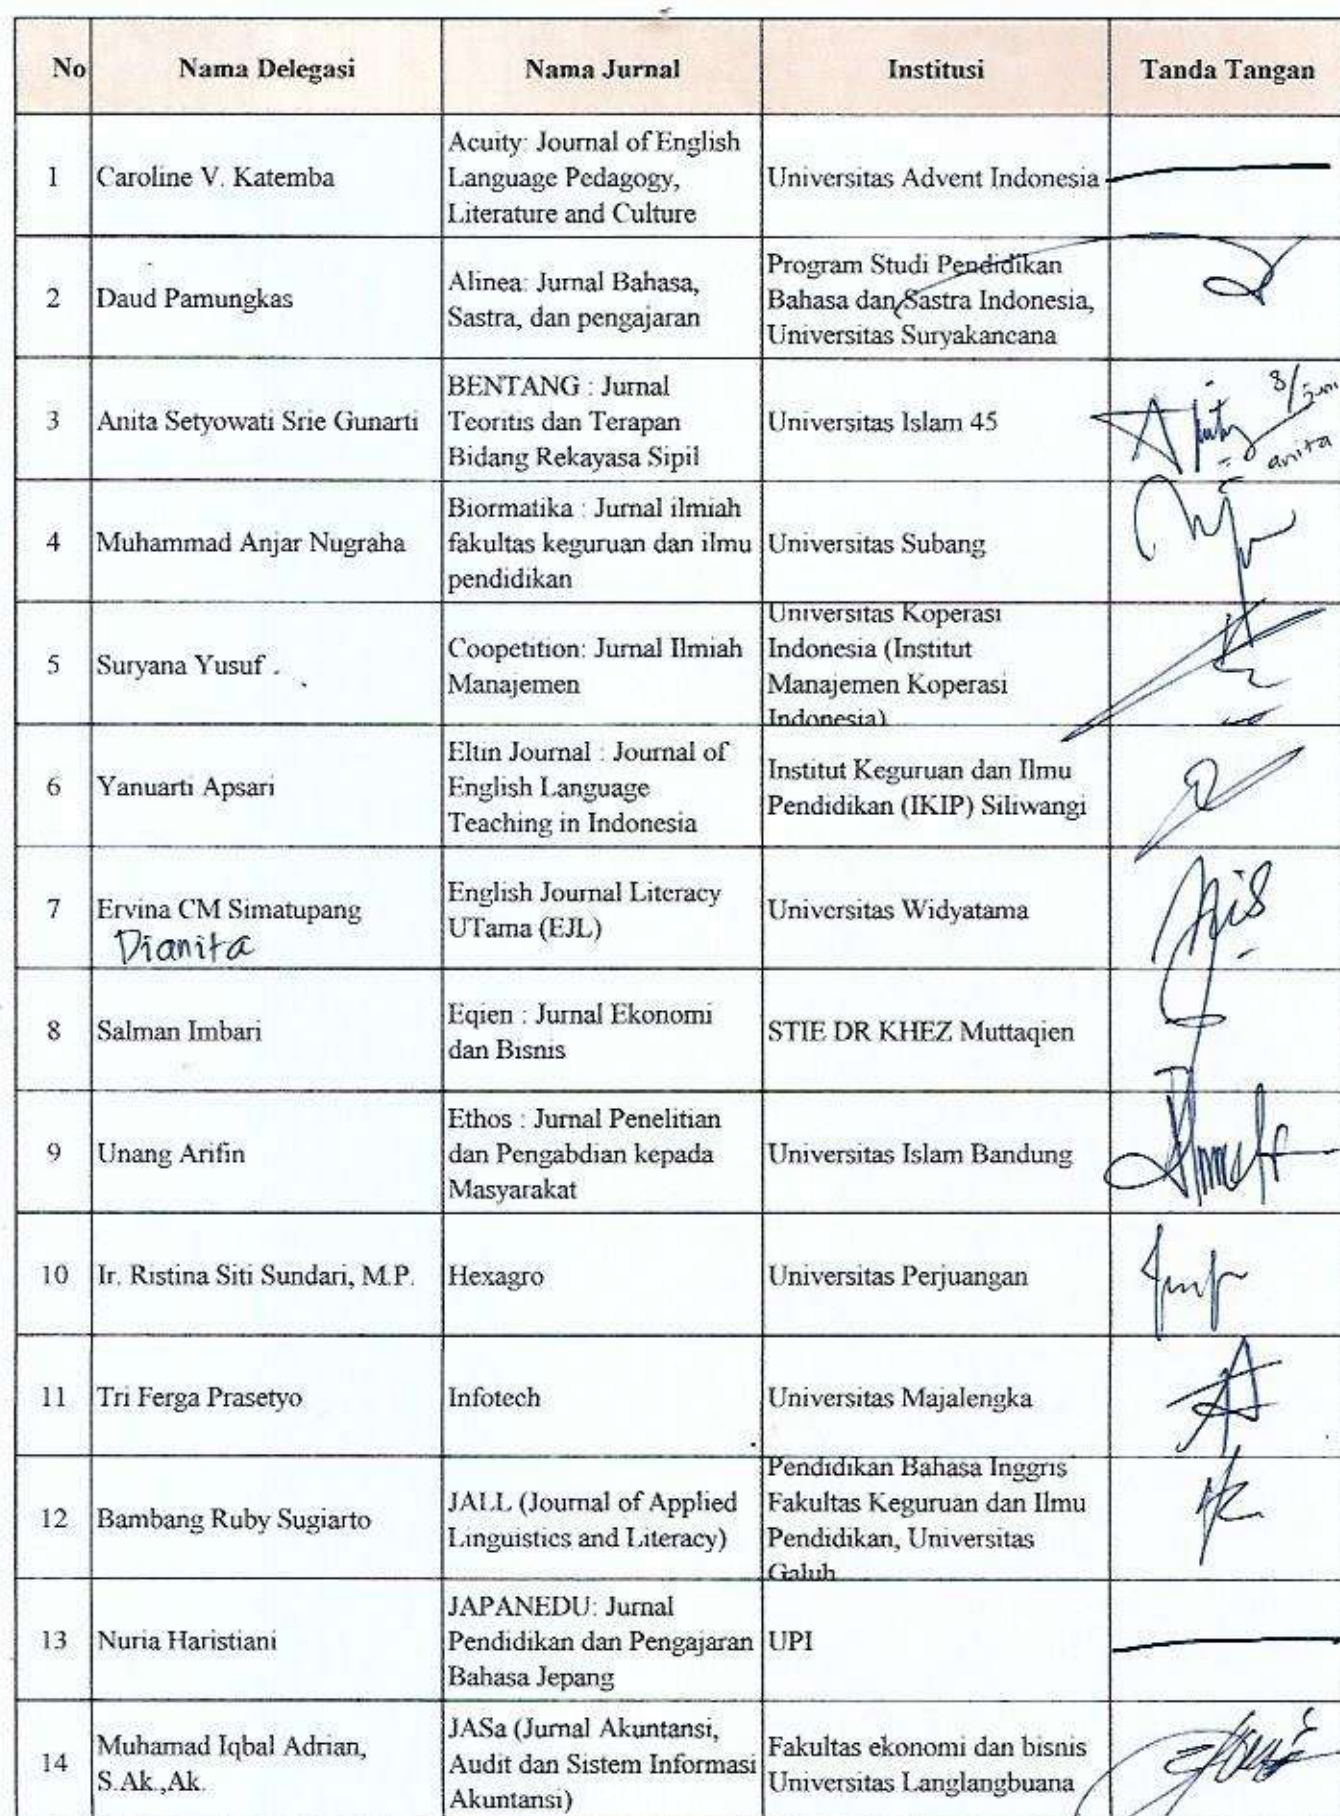 No Nama Delegasi Nama Jurnal Institusi Tanda Tangan
1 Caroline V. Katemba
Acuity: Journal of English
Language Pedagogy,
Literature and Culture
Universitas Advent Indonesia
2 Daud Pamungkas
Alinea: Jurnal Bahasa,
Sastra, dan pengajaran
Program Studi Pendidikan
Bahasa dan Sastra Indonesia,
Universitas Suryakancana
3 Anita Setyowati Srie Gunarti
BENTANG : Jurnal
Teoritis dan Terapan
Bidang Rekayasa Sipil
Universitas Islam 45
8/juni
anita
4 Muhammad Anjar Nugraha
Biormatika : Jurnal ilmiah
fakultas keguruan dan ilmu
pendidikan
Universitas Subang
5 Suryana Yusuf
Coopetition: Jurnal Ilmiah
Manajemen
Universitas Koperasi
Indonesia (Institut
Manajemen Koperasi
Indonesia)
6 Yanuarti Apsari
Eltin Journal : Journal of
English Language
Teaching in Indonesia
Institut Keguruan dan Ilmu
Pendidikan (IKIP) Siliwangi
7 Ervina CM Simatupang
Dianita
English Journal Literacy
UTama (EJL)
Universitas Widyatama
8 Salman Imbari
Eqien : Jurnal Ekonomi
dan Bisnis
STIE DR KHEZ Muttaqien
9 Unang Arifin
Ethos : Jurnal Penelitian
dan Pengabdian kepada
Masyarakat
Universitas Islam Bandung
10 Ir. Ristina Siti Sundari, M.P.
Hexagro
Universitas Perjuangan
11 Tri Ferga Prasetyo
Infotech
Universitas Majalengka
12 Bambang Ruby Sugiarto
JALL (Journal of Applied
Linguistics and Literacy)
Pendidikan Bahasa Inggris
Fakultas Keguruan dan Ilmu
Pendidikan, Universitas
Galuh
13 Nuria Haristiani
JAPANEDU: Jurnal
Pendidikan dan Pengajaran
Bahasa Jepang
UPI
14 Muhamad Iqbal Adrian,
S.Ak.,Ak.
JASa (Jurnal Akuntansi,
Audit dan Sistem Informasi
Akuntansi)
Fakultas ekonomi dan bisnis
Universitas Langlangbuana